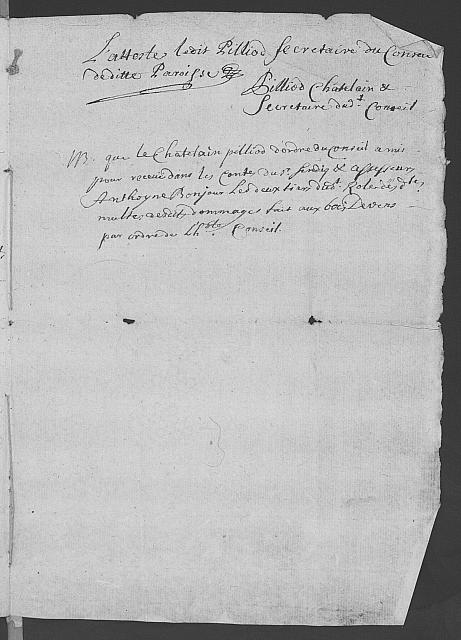 L'atteste ledit Pilliod secretaire du Conseil
de ditte Paroisse
Pilliod Chatelain &
Secretaire dudt Conseil
NB. que le Chatelain pilliod d'ordre du Conseil a mis
pour receu dans les Contes du Sr sindiq & assesseur
Anthoyne Bonjour les deux tiers dudt Role desdtes
multes desdits dommages fait aux bois Devens
par ordre de Lhble Conseil